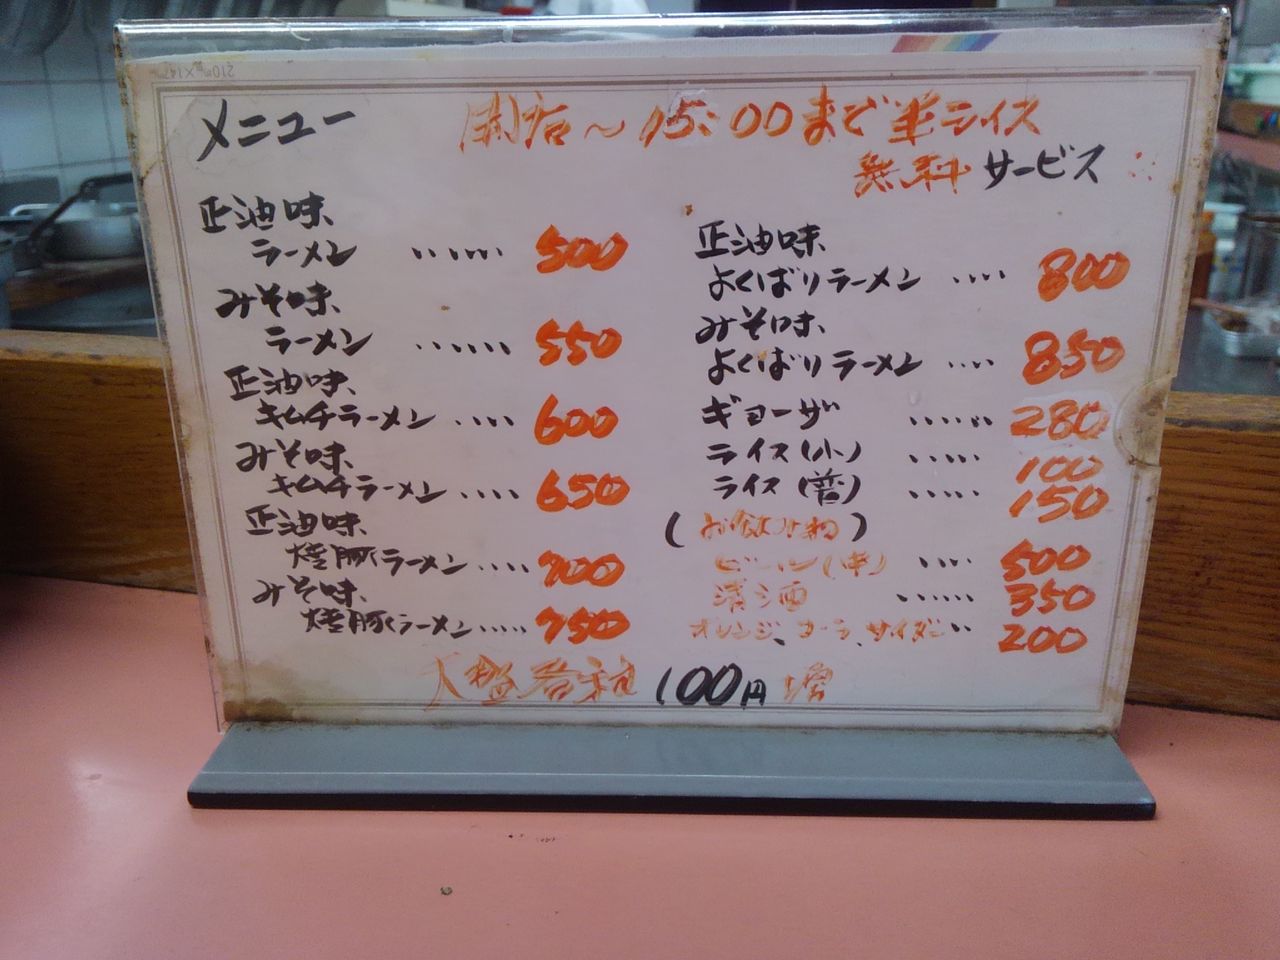 メニュー
開店～15:00まで半ライス
無料サービス
正油味
ラーメン ‥‥‥ 500
みそ味
ラーメン ‥‥‥ 550
正油味
キムチラーメン ‥‥ 600
みそ味
キムチラーメン ‥‥ 650
正油味
焼豚ラーメン ‥‥ 700
みそ味
焼豚ラーメン ‥‥‥ 750
正油味
よくばりラーメン ‥‥ 800
みそ味
よくばりラーメン ‥‥ 850
ギョーザ ‥‥‥ 280
ライス(小) ‥‥‥ 100
ライス(普) ‥‥‥ 150
(お飲み物)
ビール(中) ‥‥ 500
清酒 ‥‥‥ 350
オレンジ、コーラ、サイダー ‥ 200
大盛各種 100円増